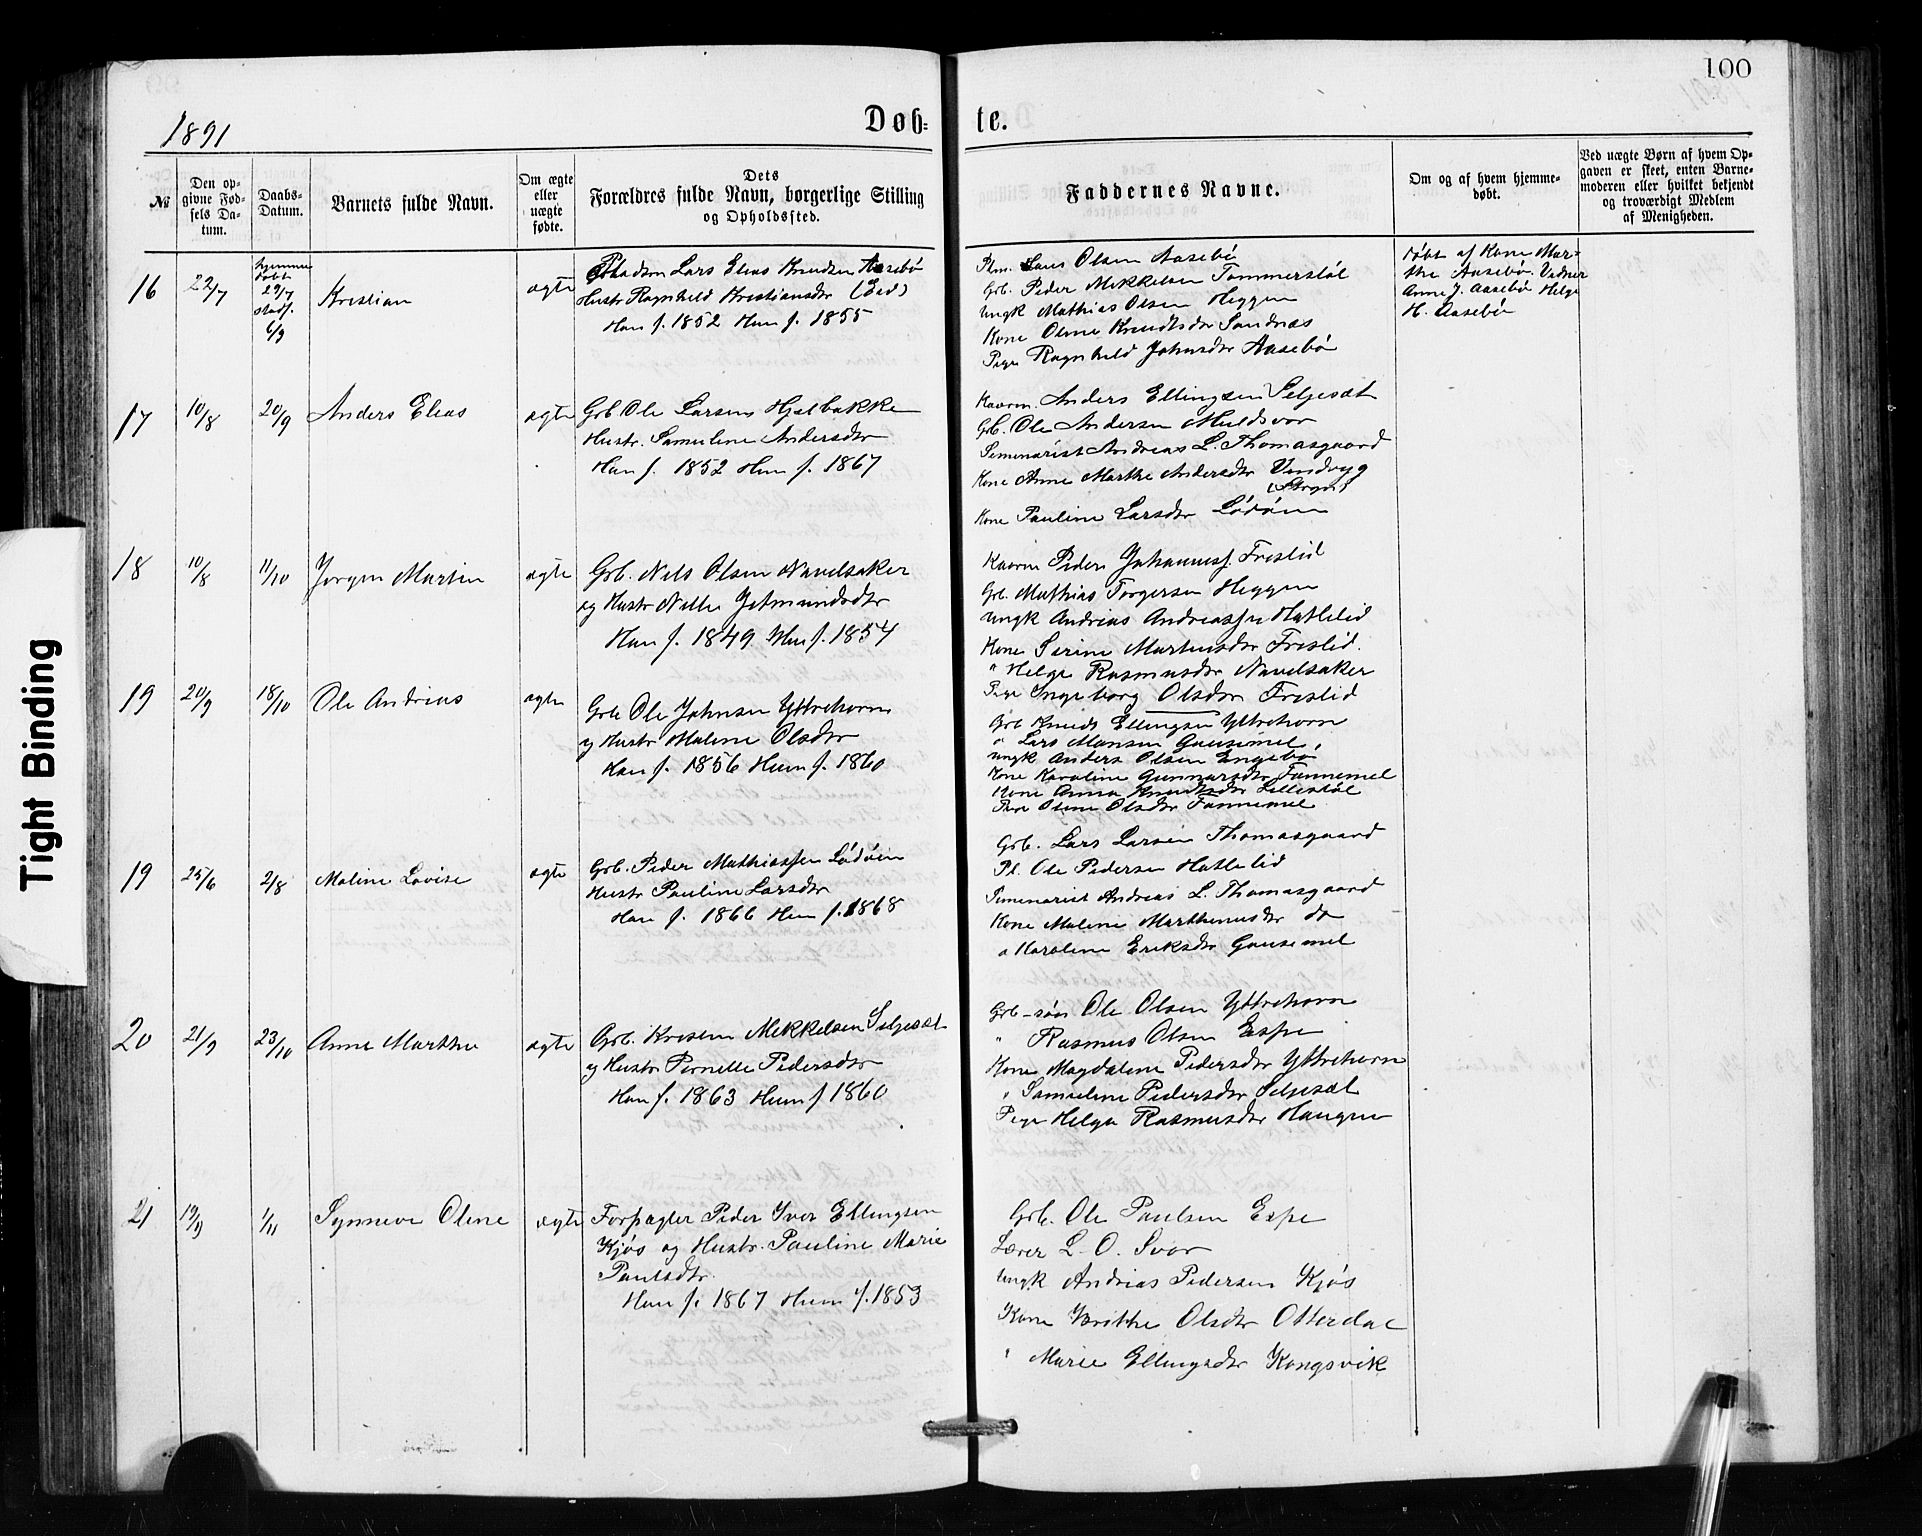 100
1891
Døb-
te.
№
Den op-
givne Fød-
sels Da-
tum.
Daabs-
Datum.
Barnets fulde Navn.
Om ægte
eller
uægte
fødte.
Dets
Forældres fulde Navn, borgerlige Stilling
og Opholdssted.
Faddernes Navne.
Om og af hvem hjemme-
døbt.
Ved uægte Børn af hvem Op-
gaven er skeet, enten Barne-
moderen eller hvilket bekjendt
og troværdigt Medlem
af Menigheden.
16
22/7
hjemme
døbt
29/7
stadf.
6/9
Kristian
ægte
Lars Elias Knudsen Aasebø
Hustr Ragnhild Kristiansdtr (Eid)
Han f. 1852 Hun f. 1855
Lars Olsen Aasebø
Grb. Peder Mekkelsen Tommerstøl
Ungk Mathias Olsen Heggen
Kone Oline Knudtsdtr Sandnæs
Pige Ragnhild Johnsdtr Aasebø
døbt af Kone Mar-
the Aasebø. Vidner
Anne J. Aasebø Helge
H. Aasebø
17
10/8
20/9
Anders Elias
ægte
Grb Ole Larsen Hjelbakke
Hustr. Samuline Andersdtr
Han f. 1852 Hun f. 1867
Kaarm. Anders Ellingsen Seljesæt
Grb. Ole Andersen Muldsvor
Seminarist Andreas L. Thomasgaard
Kone Anne Marthe Andersdtr Vindsyg
(Stryn)
Kone Pauline Larsdtr Lødøen
18
10/8
11/10
Jørgen Martin
ægte
Grb. Nils Olsen Navelsaker
og Hustr Nille Jetmundsdtr
Han f. 1849 Hun f. 1854
Kaarm Peder Johannesf. Freslid
Grb. Mathias Torgersen Heggen
Ungk Andrias Andreassen Hatlelid
Kone Serine Martinsdtr Freslid.
" Helge Rasmusdtr Navelsaker
Pige Ingeborg Olsdtr Freslid
19
20/9
18/10
Ole Andrias
ægte
Grb Ole Johnsen Yttrehorn
og Hustr Maline Olsdtr
Han f. 1856 Hun f. 1860
Grb Knudt Ellingsen Yttrehorn
" Lars Monsen Gausemel.
Ungk Anders Olsen Engebø
Kone Karoline Gunnarsdtr Fannemel
Kone Anna Knudtsdtr Lillestøl
Pige Oline Olsdtr Fannemel
19
25/6
2/8
Maline Lovise
ægte
Grb. Peder Mathiassen Lødøen
Hustr Pauline Larsdtr
Han f. 1866 Hun f. 1868
Grb. Lars Larsen Thomasgaard
Pl. Ole Pedersen Hatlelid
Seminarist Andreas L. Thomasgaard
Kone Malene Marthinusdtr do
" Karoline Eriksdtr Gausemel
20
21/9
23/10
Anne Marthe
ægte
Grb. Kristen Mekkelsen Seljesæt
og Hustr Pernelle Pedersdtr
Han f. 1863 Hun f 1860
Grb-søn Ole Olsen Yttrehorn
" Rasmus Olsen Espe
Kone Magdalene Pedersdtr Yttrehorn
" Samuline Pedersdtr Seljesæt
Pige Helga Rasmusdtr Haugen
21
19/9
1/11
Synneve Oline
ægte
Forpagter Peder Iver Ellingsen
Kjøs og Hustr. Pauline Marie
Paulsdtr.
Han f. 1867 Hun f. 1853
Grb. Ole Paulsen Espe
Lærer L. O. Svor
Ungk Andrias Pedersen Kjøs
Kone Britthe Olsdtr Otterdal
" Marie Ellingsdtr Kongsvik
Tight Binding